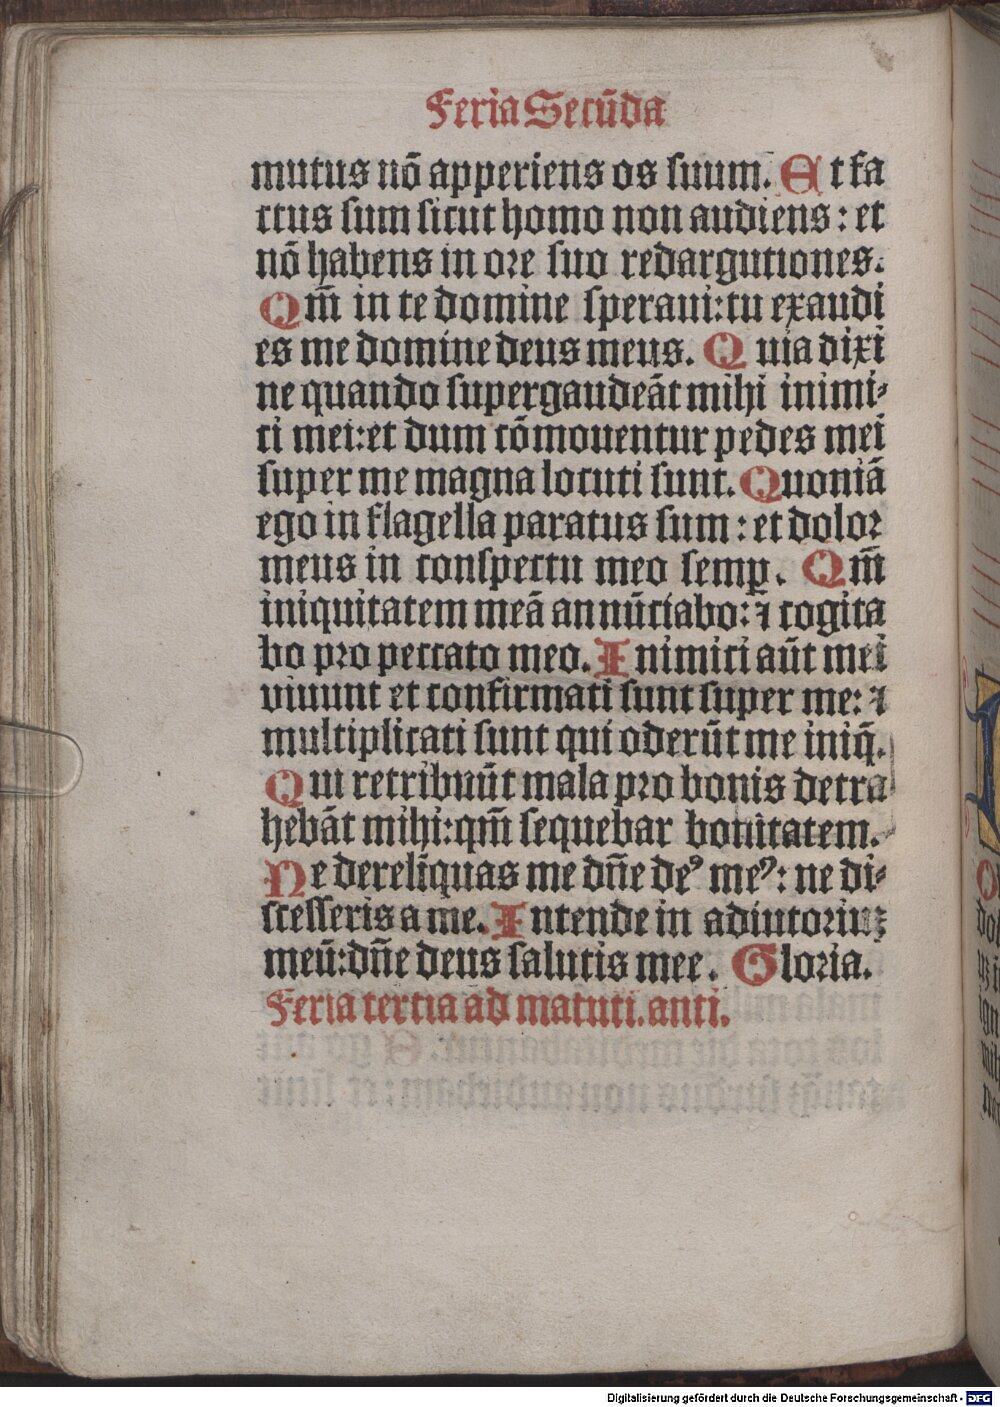 Feria Secūda
mutus nō apperiens os suum. Et fa
ctus sum sicut homo non audiens: et
nō habens in ore suo redargutiones.
Qm̄ in te domine speraui: tu exaudi
es me domine deus meus. Quia dixi
ne quando supergaudeāt mihi inimi-
ci mei: et dum cōmouentur pedes mei
super me magna locuti sunt. Quoniā
ego in flagella paratus sum: et dolor
meus in conspectu meo semꝑ. Qm̄
iniquitatem meā annūciabo: ⁊ cogita
bo pro peccato meo. Inimici aūt mei
viuunt et confirmati sunt super me: ⁊
multiplicati sunt qui oderūt me iniq̄.
Qui retribuūt mala pro bonis detra
hebāt mihi: qm̄ sequebar bonitatem.
Ne derelīquas me dn̄e deꝰ meꝰ: ne di-
scesseris a me. Intende in adiutoriuꝫ
meū: dn̄e deus salutis mee. Gloria.
Feria tertia ad matuti. anti.
Digitalisierung gefördert durch die Deutsche Forschungsgemeinschaft - DFG